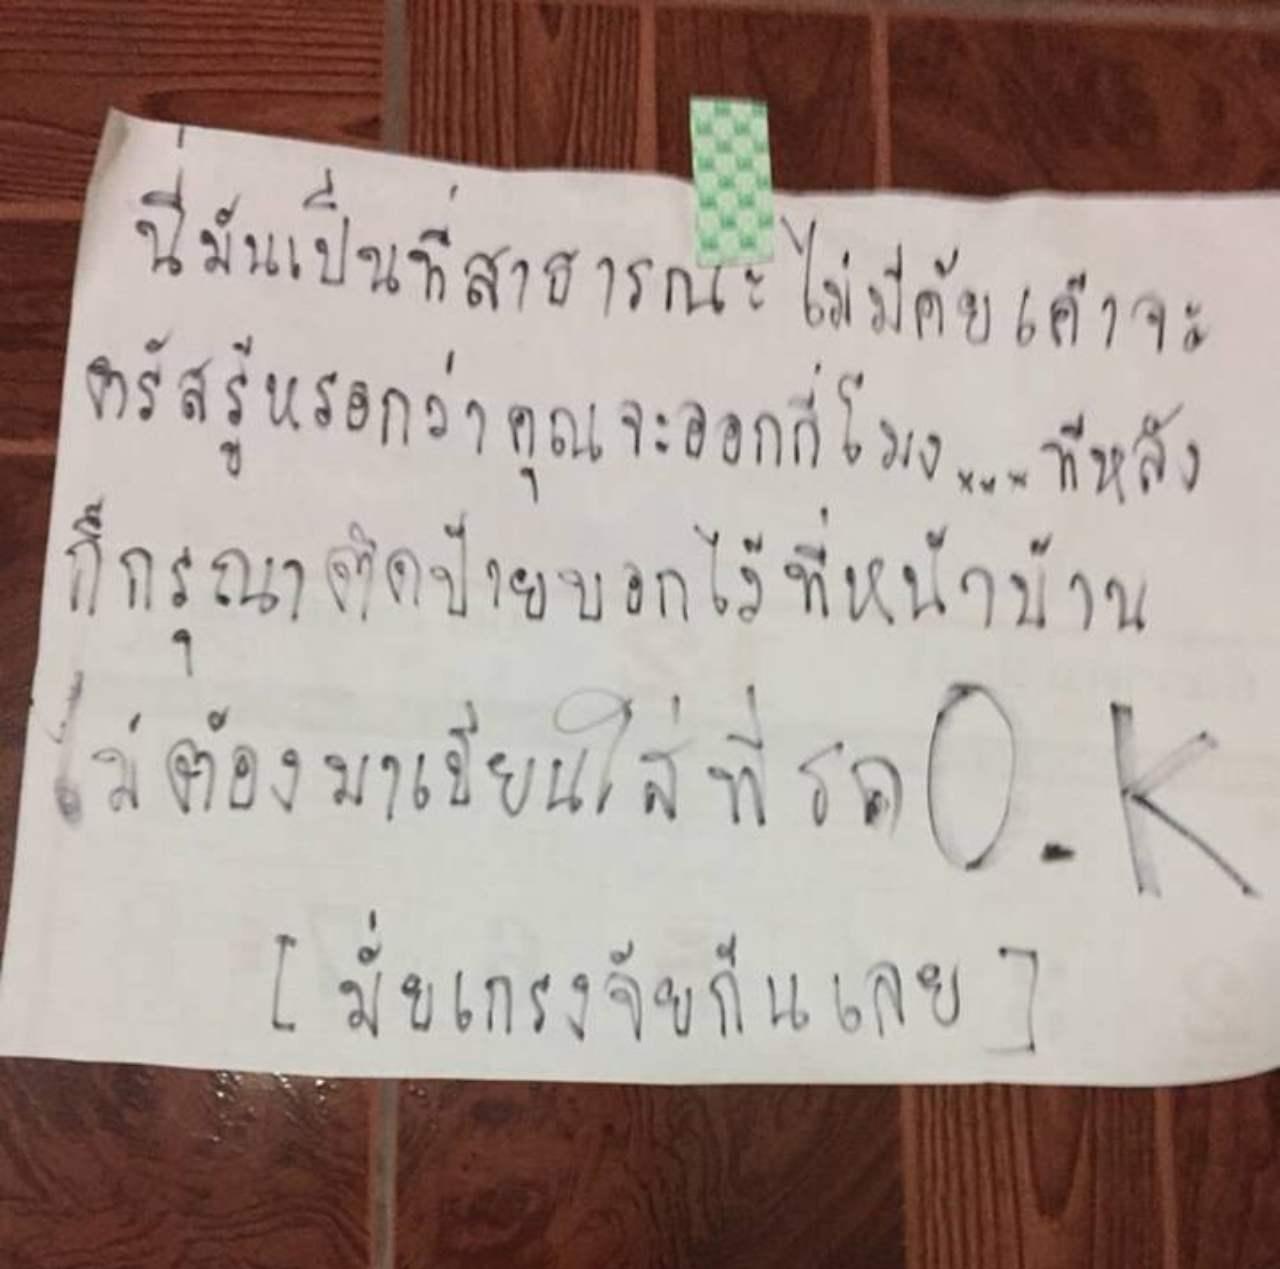 นี่มันเป็นที่สาธารณะ ไม่มีคัยเค้าจะ
ตรัสรู้หรอกว่าคุณจะออกกี่โมง... ทีหลัง
ก็กรุณาติดป้ายบอกไว้ที่หน้าบ้าน
ไม่ต้องมาเขียนใส่ที่รถ O.K
[มั่ยเกรงจัยกันเลย]